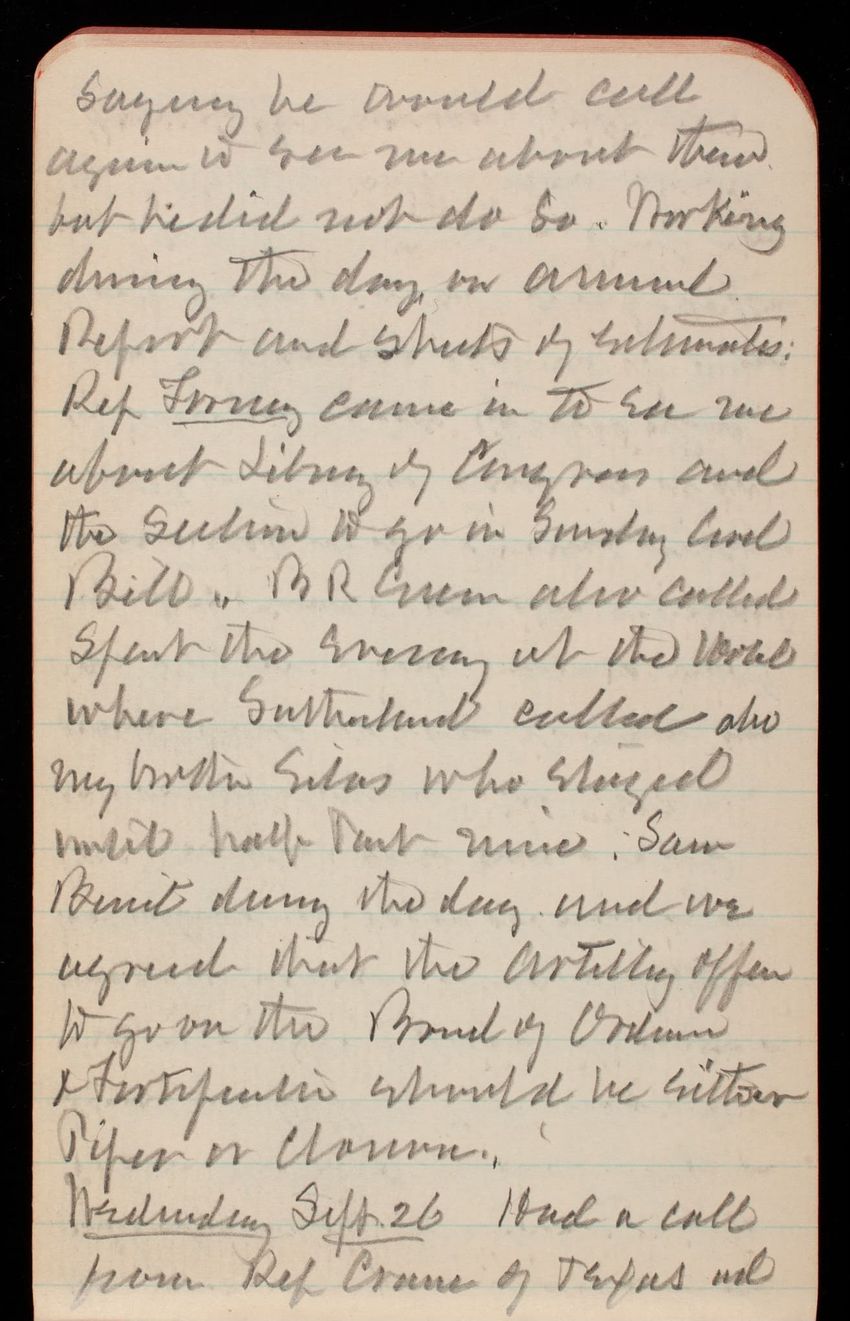 saying he would call
again to see me about them
but he did not do so. Working
during the day on annual
Report and sheets of estimates.
Rep Forney came in to see me
about Library of Congress and
the Section to go in Sunday Civil
Bill. B R Green also called
Spent the evening at the Hotel
where Sutherland called also
my brother Silas who stayed
until half past nine. Saw
Benit during the day and we
agreed that the Artillery Officer
to go on the Board of Ordnance
& Fortification should be either
Piper or Closson.
Wednesday Sept. 26 Had a call
from Rep Crane of Texas and